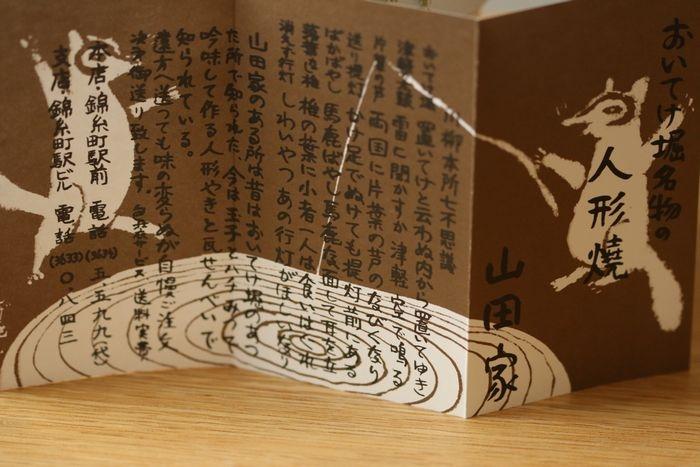 おいてけ堀名物の
人形燒
山田家
川柳本所七不思議
おいてけ堀 置いてけと云わぬ内から置いてゆき
津軽太鼓 雷に聞かすか津軽 空で鳴る
片葉の芦 両国に片葉の芦のなびくなり
送り提灯 かけ足でぬけても提灯前にある
ばかばやし 馬鹿ばやし馬鹿な面して耳を立
落葉なき椎 椎の葉に小者一人は食いはぐれ
消えず行灯 しわいやつあの行灯がほしいなり
山田家のある所は昔はおいてけ堀のあっ
た所で知られた 今は玉子とハチみつで
吟味して作る人形やきと瓦せんべいで
知られている。
遠方へ送っても味の変らぬが自慢ご注文
次第御送り致します。
送料実費
本店・錦糸町駅前 電話(3634)五、五九九(代)
支店・錦糸町駅ビル 電話(3633)〇、八四三